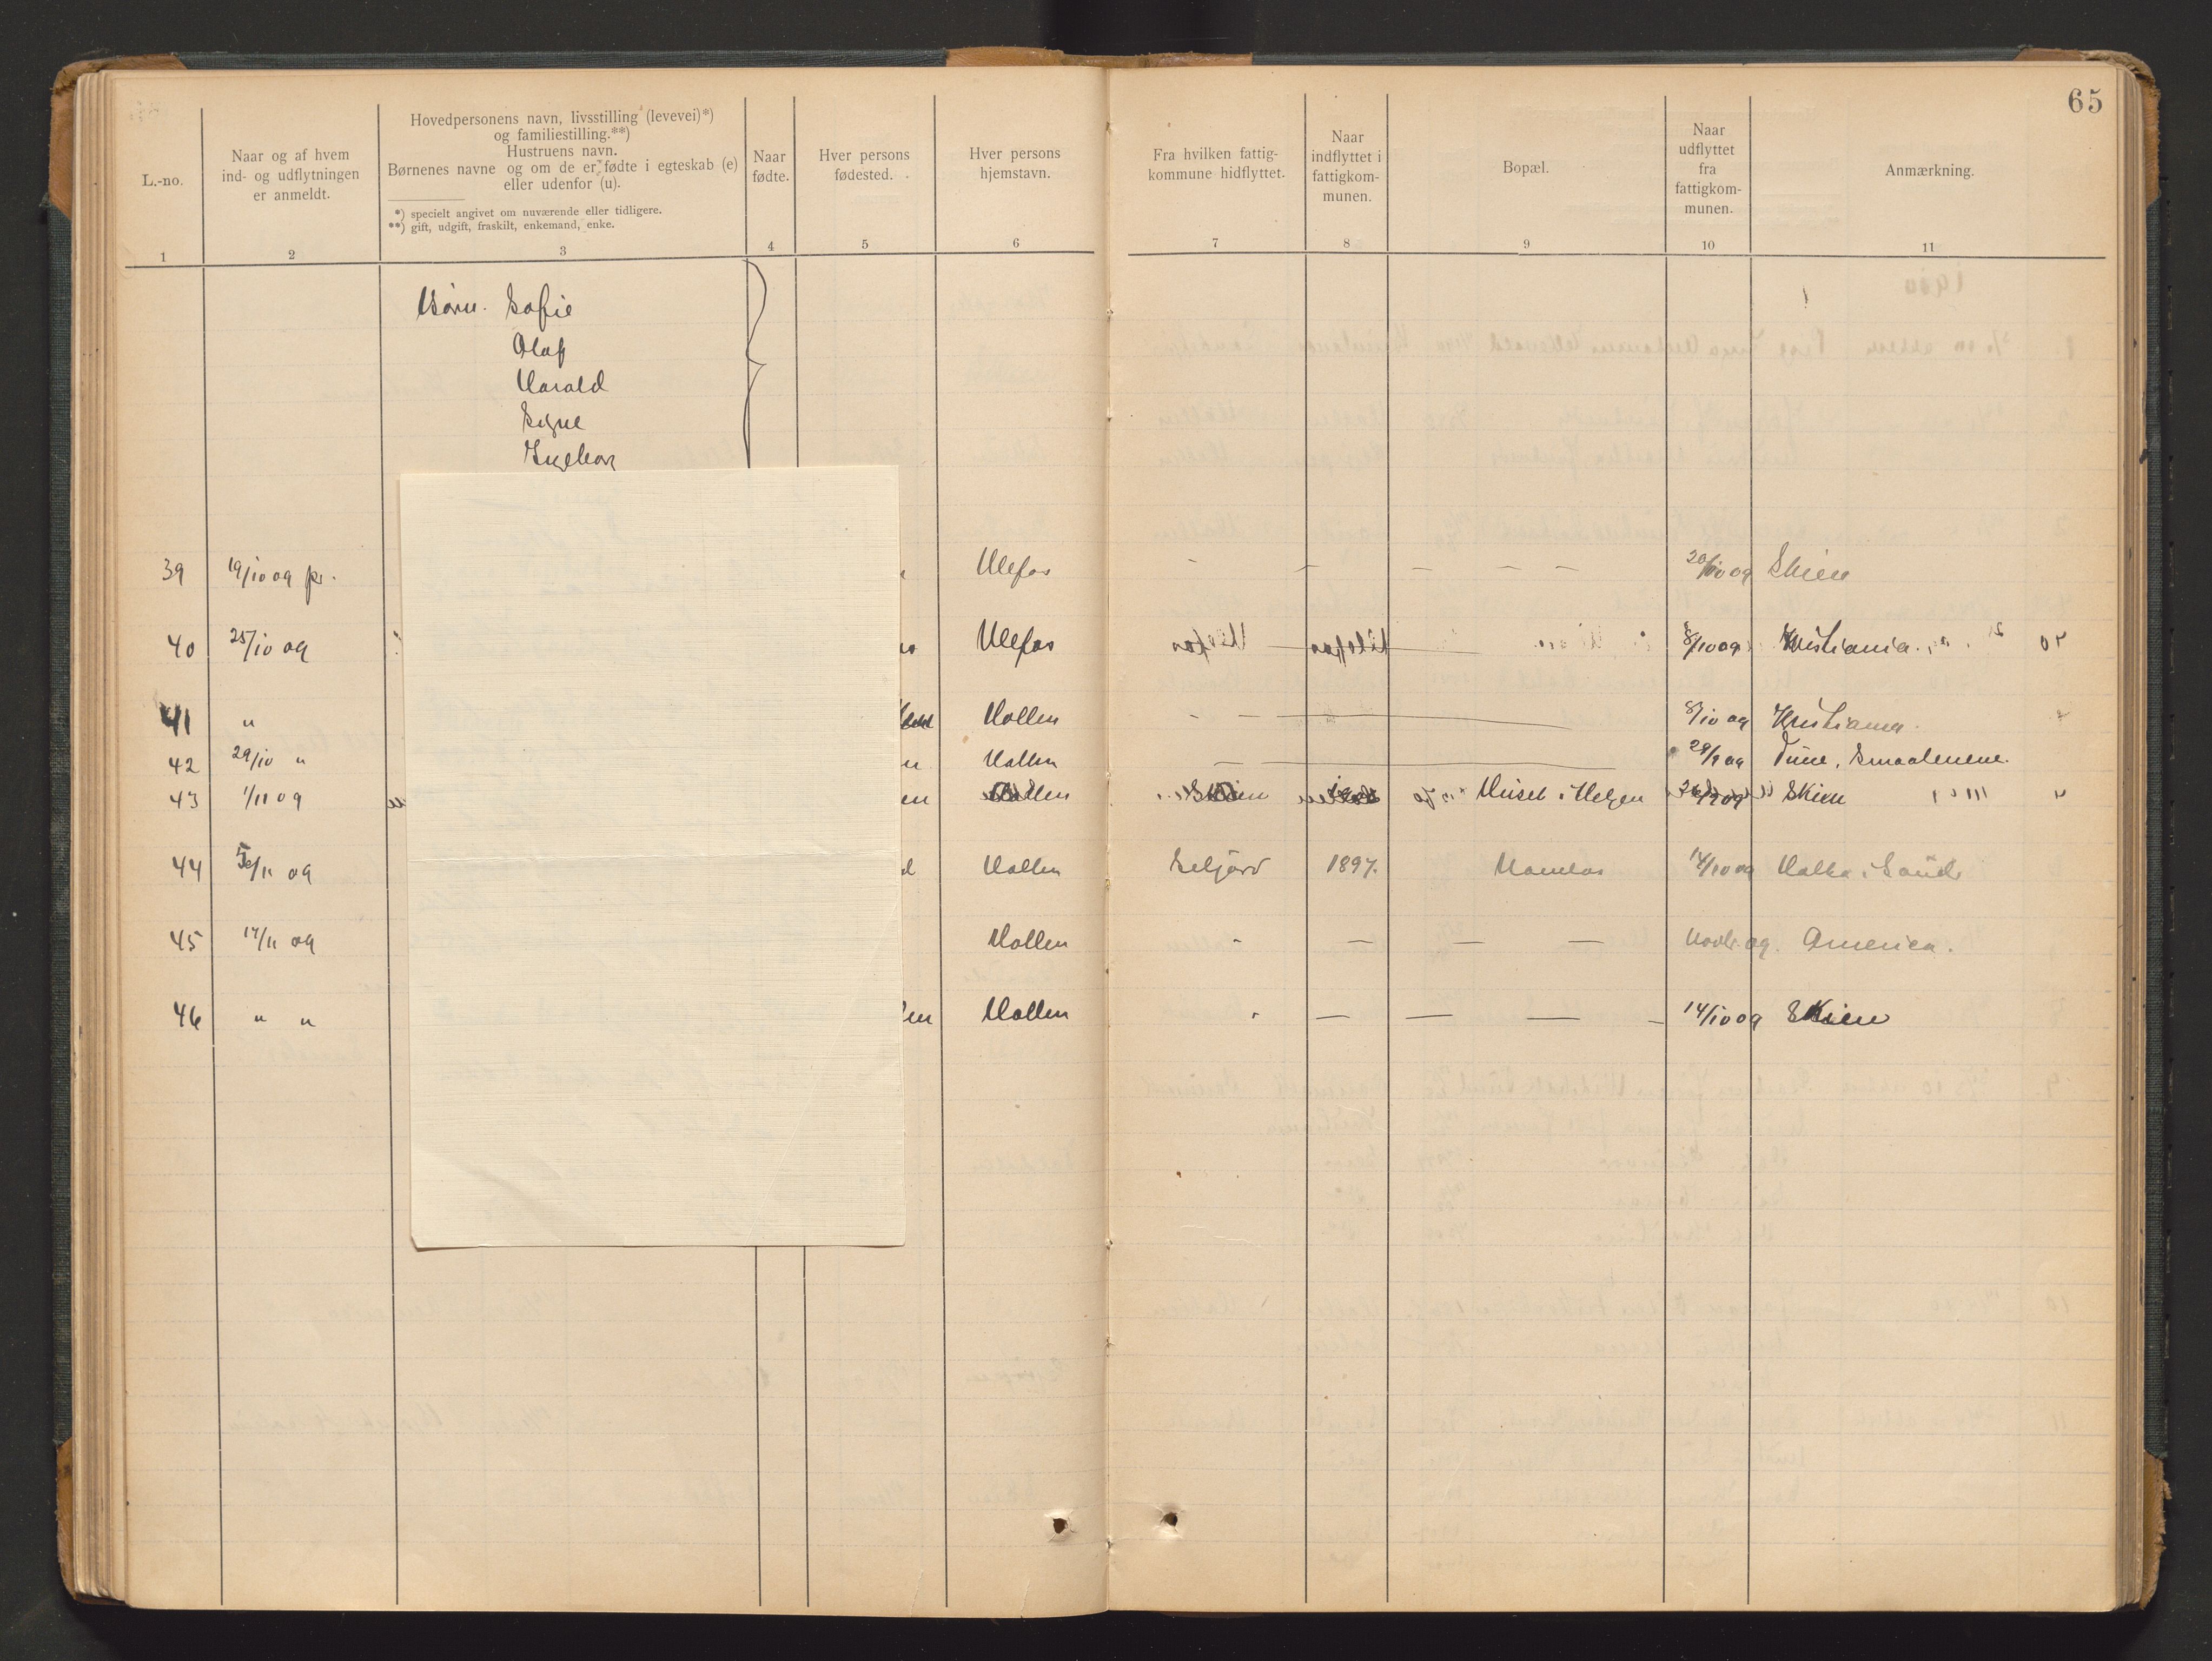 65
L.-no.
Naar og af hvem
ind- og udflytningen
er anmeldt.
Hovedpersonens navn, livsstilling (levevei)*)
og familiestilling.**)
Hustruens navn.
Børnenes navne og om de er fødte i egteskab (e)
eller udenfor (u).
*) specielt angivet om nuværende eller tidligere.
**) gift, udgift, fraskilt, enkemand, enke.
Naar
fødte.
Hver persons
fødested.
Hver persons
hjemstavn.
Fra hvilken fattig-
kommune hidflyttet.
Naar
indflyttet i
fattigkom-
munen.
Bopæl.
Naar
udflyttet
fra
fattigkom-
munen.
Anmærkning.
1 2 3 4 5 6 7 8 9 10 11
Børn. Sofie
Olaf
Harald
Signe
Ingeborg
39 19/10 09 pr. Ulefos - - - - - 20/10 09 Skien
40 25/10 09 Ulefos 8/10 09 Kristiania.
41 " Hollen - - 8/10 09 Kristiania.
42 29/10 " Hollen 29/9 09 Tune, Smaalenene.
43 1/11 09 en Hollen Skien Huset i Helgen 26/9 09 Skien
44 5/11 09 Hollen Seljord 1897. 14/10 09 i Saude
45 17/11 09 Hollen - - - - Novbr. 09. America.
46 " " Hollen - - - - - 14/10 09 Skien